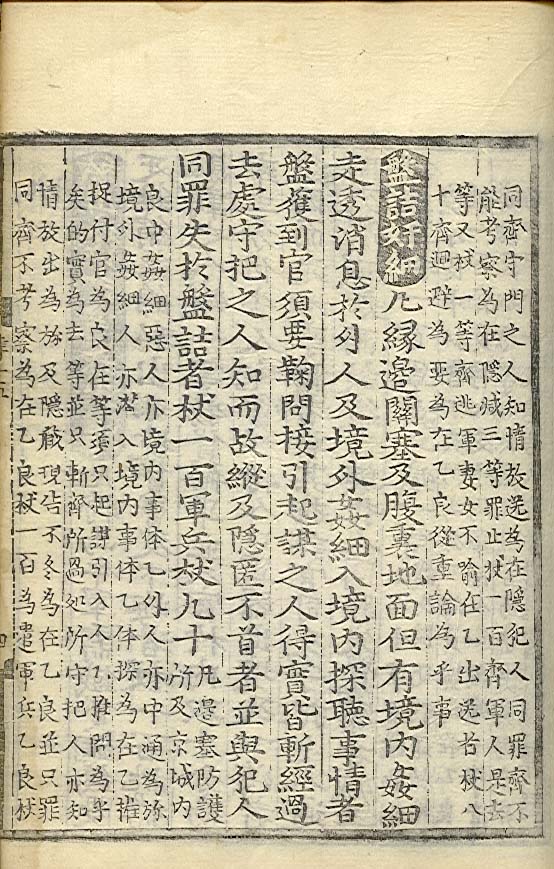 同齊守門之人知情故送為在隱犯人同罪齊不
能考察為在隱減三等罪止杖一百齊軍人是去
等又杖一等齊逃軍妻女不喻在乙出送者杖八
十齊迴避為要為在乙良從重論為乎事
盤詰奸細凡緣邊關塞及腹裏地面但有境內姦細
走透消息於外人及境外姦細入境內探聽事情者
盤獲到官須要鞫問接引起謀之人得實皆斬經過
去處守把之人知而故縱及隱匿不首者並與犯人
同罪失於盤詰者杖一百軍兵杖九十
凡邊塞防護
所及京城內
良中姦細惡人亦境內事体乙外人亦中通為弥
境外姦細人亦潛入境內事体乙体探為在乙推
捉付官為良在等須只起謀引入人乙推問為乎
矣的實為去等並只斬齊所過処所守把人亦知
情放出為弥及隱藏現告不冬為在乙良並只罪
同齊不考察為在乙良杖一百為遣軍兵乙良杖